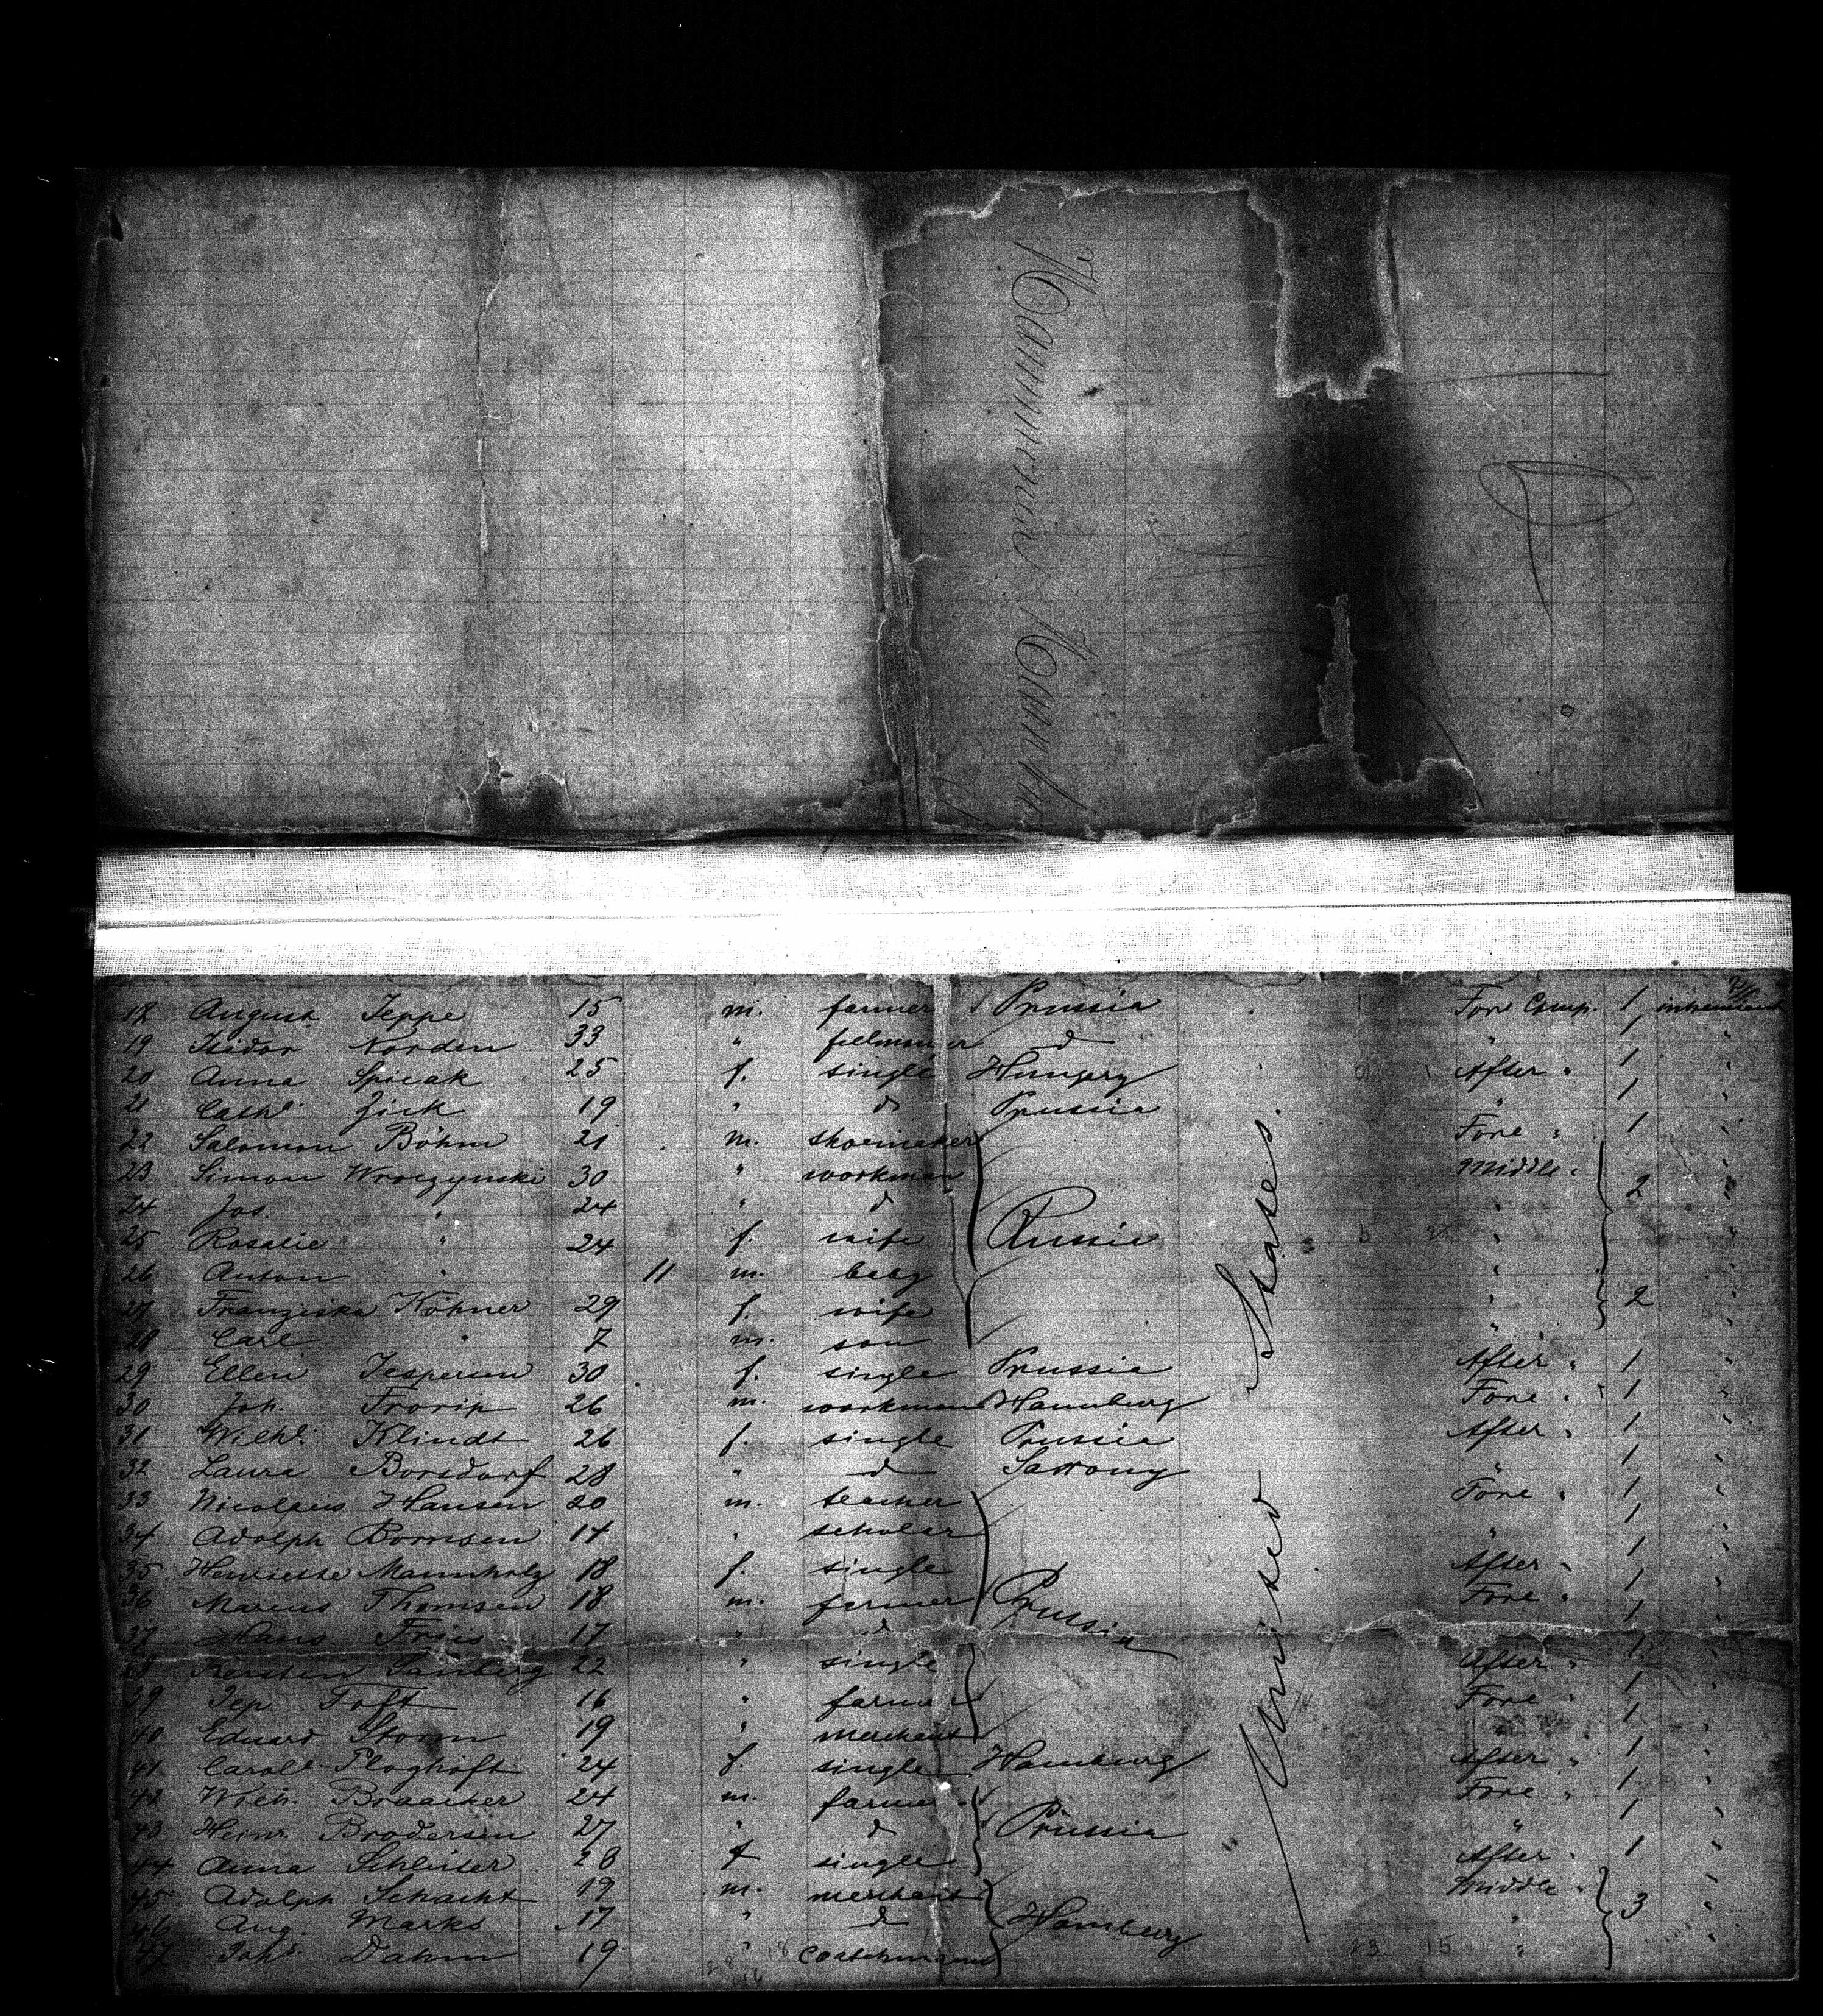 18 August Jeppe 15 m. farmer Prussia Fore Comp. 1
19 Isidor Norden 33 " fellmonger d " 1
20 Anna Spicak 25 f. single Hungary After " 1 "
21 Cathe. Zick 19 " d Prussia " 1 "
22 Salomon Böhm 21 m. shoemaker Fore " 1 "
23 Simon Wroczynski 30 " workman Middle " 2 "
24 Jos. " 24 " d " "
25 Rosalie " 24 f. wife Russia " "
26 Anton " 11 m. baby "
27 Franziska Köhner 29 f. wife " 2 "
28 Carl " 7 m. son " "
29 Ellen Jespersen 30 f. single Prussia After " 1 "
30 Joh. Frorip 26 m. workman Hamburg Fore " 1 "
31 Wilhe. Klindt 26 f. single Prussia After " 1 "
32 Laura Borsdorf 28 " d Saxony " 1 "
33 Nicolaus Hansen 20 m. teacher Fore " 1 "
34 Adolph Bornsen 14 " scholar " 1 "
35 Henriette Mannholz 18 f. single After " 1 "
36 Marcus Thomsen 18 m. farmer Prussia Fore " 1 "
37 Hans Friis 17 " d 1
38 Kersten Sanberg 22 " single After " 1
39 Jep Toft 16 " farmer Fore " 1
40 Eduard Storm 19 " merchant 1 "
41 Carole. Ploghöft 24 f. single Hamburg After " 1 "
42 Wilh. Braacker 24 m. farmer Fore " 1 "
43 Heinr. Brodersen 27 " d Prussia " 1 "
44 Anna Schlüter 28 f single After " 1 "
45 Adolph Schacht 19 m. merchant Middle " 3 "
46 Aug. Marks 17 " d Hamburg " "
47 Johs. Dahm 19 " coachmann " "
United States.